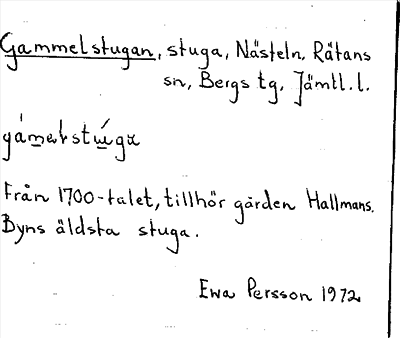 Gammelstugan, stuga, Nästeln, Rätans
sn, Bergs tg, Jämtl.l.
Från 1700-talet, tillhör gården Hallmans.
Byns äldsta stuga.
Ewa Persson 1972